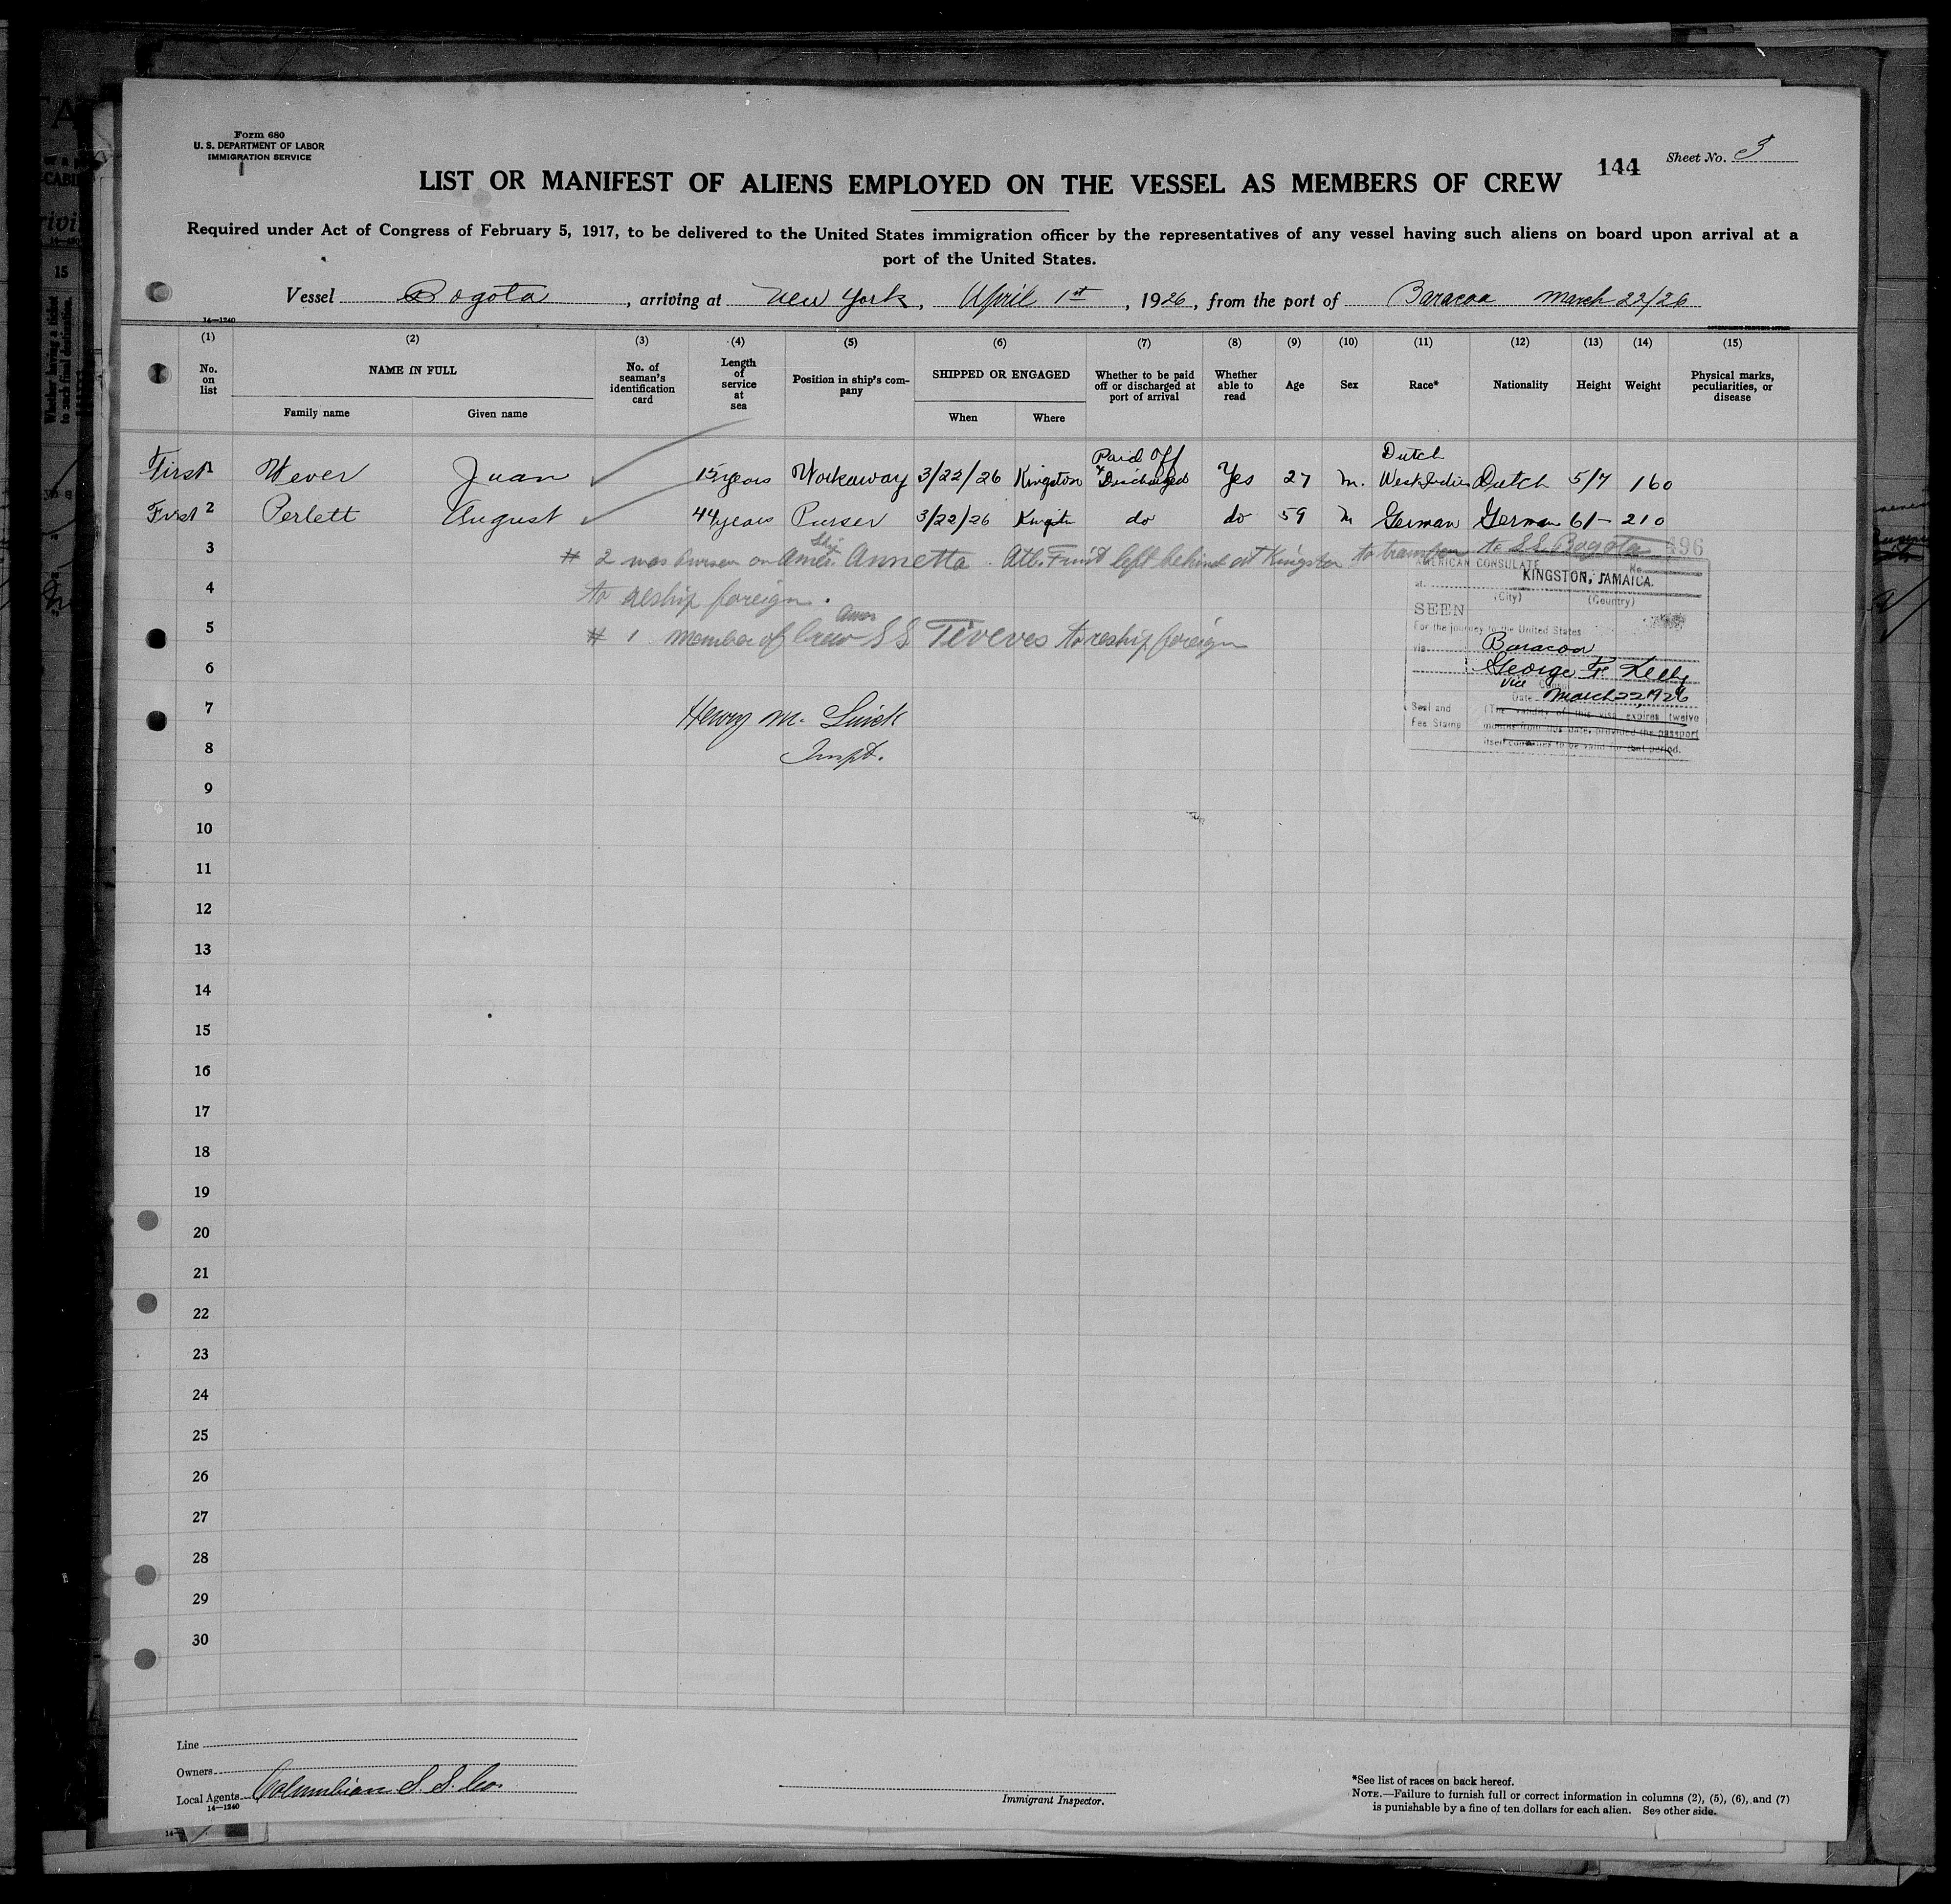 Form 680
U. S. DEPARTMENT OF LABOR
IMMIGRATION SERVICE
144
Sheet No. 3
LIST OR MANIFEST OF ALIENS EMPLOYED ON THE VESSEL AS MEMBERS OF CREW
Required under Act of Congress of February 5, 1917, to be delivered to the United States immigration officer by the representatives of any vessel having such aliens on board upon arrival at a
port of the United States.
Vessel Bogota, arriving at New York, April 1st, 1926, from the port of Baracoa March 22/26
14—1240
(1) (2) (3) (4) (5) (6) (7) (8) (9) (10) (11) (12) (13) (14) (15)
No. on list
NAME IN FULL
Family name Given name
No. of seaman's identification card
Length of service at sea
Position in ship's company
SHIPPED OR ENGAGED
When Where
Whether to be paid off or discharged at port of arrival
Whether able to read
Age
Sex
Race*
Nationality
Height
Weight
Physical marks, peculiarities, or disease
First 1 Wever Juan 15 years Workaway 3/22/26 Kingston Paid Off & Discharged Yes 27 M. Dutch West Indies Dutch 5/7 160
First 2 Perlett August 44 years Purser 3/22/26 Kingston do do 59 M German German 6/- 210
3
# 2 was on Amer. Ship Annetta. Atl. Fruit left behind at Kingston to transfer to S.S. Bogota
4
to reship foreign.
5
# 1 member of Crew Amer SS Tiveves to reship foreign
6
7
Henry M.
8
Inspt.
496
AMERICAN CONSULATE
at KINGSTON, JAMAICA. No.
(City) (Country)
SEEN
For the journey to the United States
via Baracoa
George F. Kelly
Vice Consul
Date March 22 1926
Seal and
Fee Stamp
(The validity of this visa expires twelve
months from this date, provided the passport
itself continues to be valid for that period.
9
10
11
12
13
14
15
16
17
18
19
20
21
22
23
24
25
26
27
28
29
30
Line
Owners
Local Agents Columbian S. S. Co.
14—1240
Immigrant Inspector.
*See list of races on back hereof.
NOTE.—Failure to furnish full or correct information in columns (2), (5), (6), and (7)
is punishable by a fine of ten dollars for each alien. See other side.